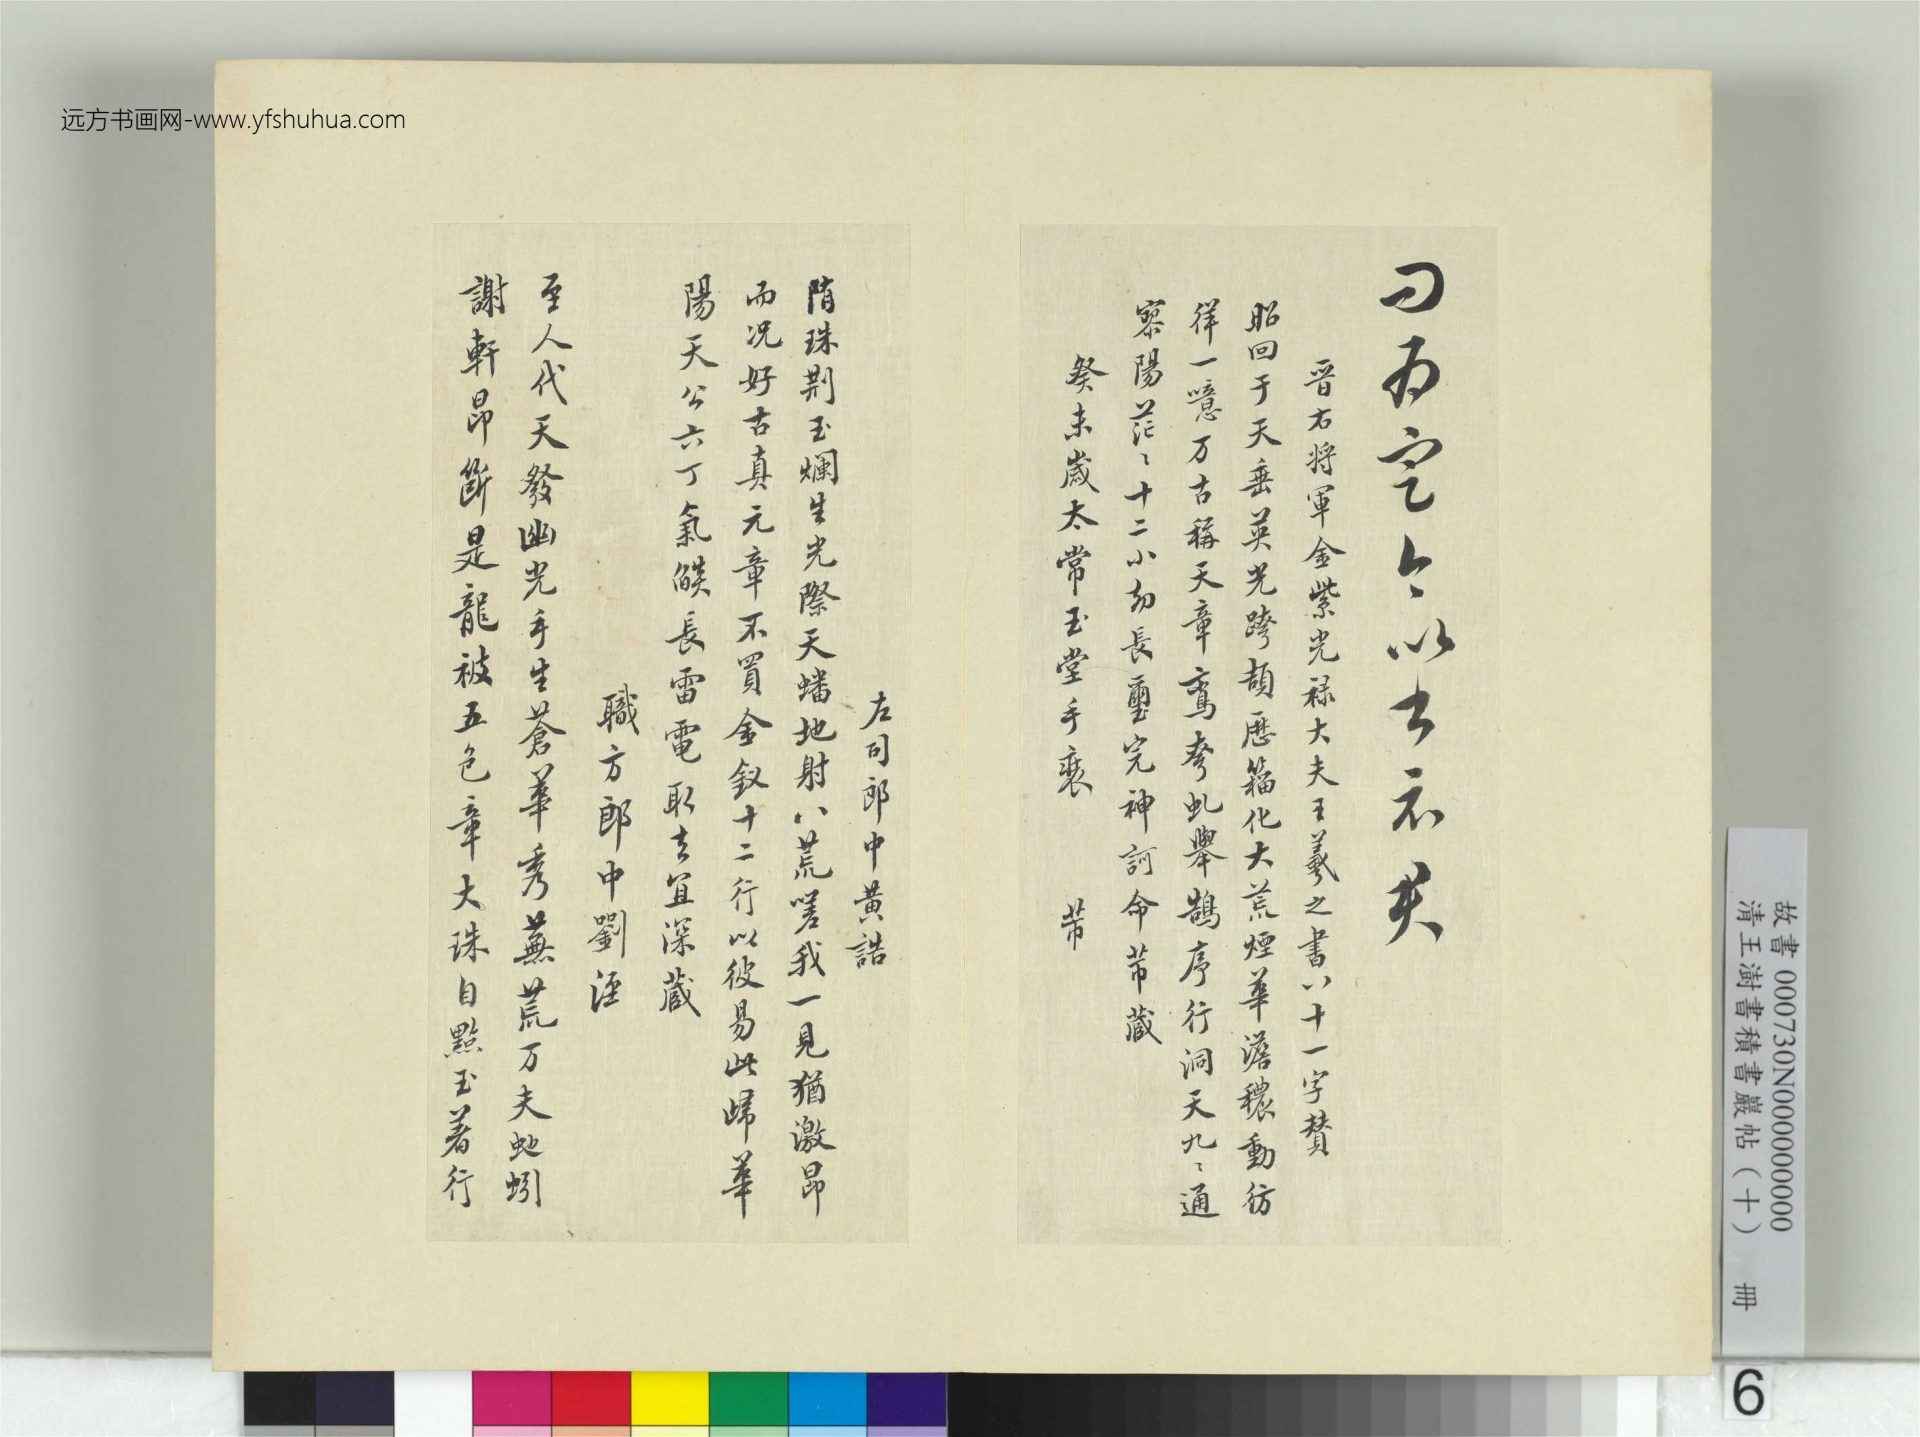 远方书画网-www.yfshuhua.com
晉右將軍金紫光祿大夫王羲之書八十一字贊
昭回于天垂英光跨頡歷籀化大荒煙華澹穠動彷
徉一噫万古稱天章鸞夸虬舉鵠序行洞天九〻通
寥陽茫〻十二小劫長璽完神訶命芾藏
癸未歲太常玉堂手裝 芾
左司郎中黃誥
隋珠荆玉爛生光際天蟠地射八荒嗟我一見猶激昂
而况好古真元章不買金釵十二行以彼易此歸華
陽天公六丁氣燄長雷電取去宜深藏
職方郎中劉涇
至人代天發幽光手生蒼華秀蕪荒万夫虵蚓
謝軒昂斷是龍被五色章大珠自點玉著行
故書000730N000000000
清王澍書積書巖帖（十） 冊
6